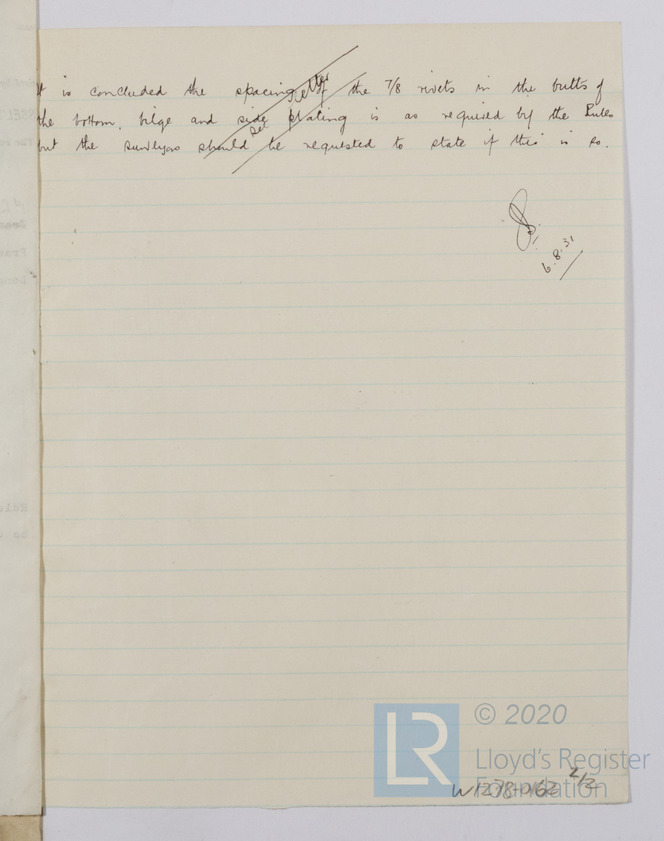 It is concluded the spacing of the 7/8 rivets in the butts of
the bottom, bilge and side plating is as required by the Rules
but the surveyors should be requested to state if this is so.
See letter
6.8.31
LR
© 2020
Lloyd's Register
Foundation
W1278-0162 2/2